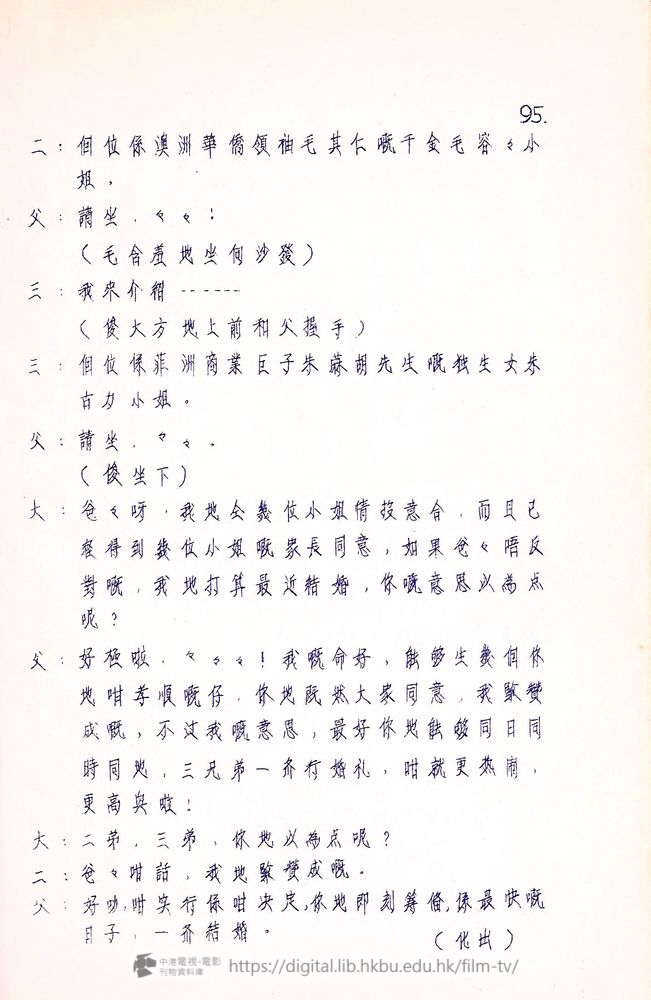 95.
二：個位係澳洲華僑領袖毛其仁嘅千金毛容々小
姐。
父：請坐，々々！
（毛含羞地坐向沙發）
三：我來介紹------
（傻大方地上前和父握手）
三：個位係菲洲商業巨子朱蔴胡先生嘅独生女朱
古力小姐。
父：請坐，々々。
（傻坐下）
大：爸々呀，我地仝幾位小姐情投意合，而且已
經得到幾位小姐嘅家長同意，如果爸々唔反
對嘅，我地打算最近結婚，你嘅意思以為点
呢？
父：好極啦，々々々！我嘅命好，能够生幾個你
地咁孝順嘅仔，你地既然大家同意，我緊贊
成嘅，不过我嘅意思，最好你地能够同日同
時同地，三兄弟一齐行婚礼，咁就更热闹，
更高兴啦！
大：二弟，三弟，你地以為点呢？
二：爸々咁話，我地緊贊成嘅。
父：好叻，咁实行係咁决定，你地即刻筹備，係最快嘅
日子，一齐結婚。（化出）
中港電視・電影
刊物資料庫
https://digital.lib.hkbu.edu.hk/film-tv/